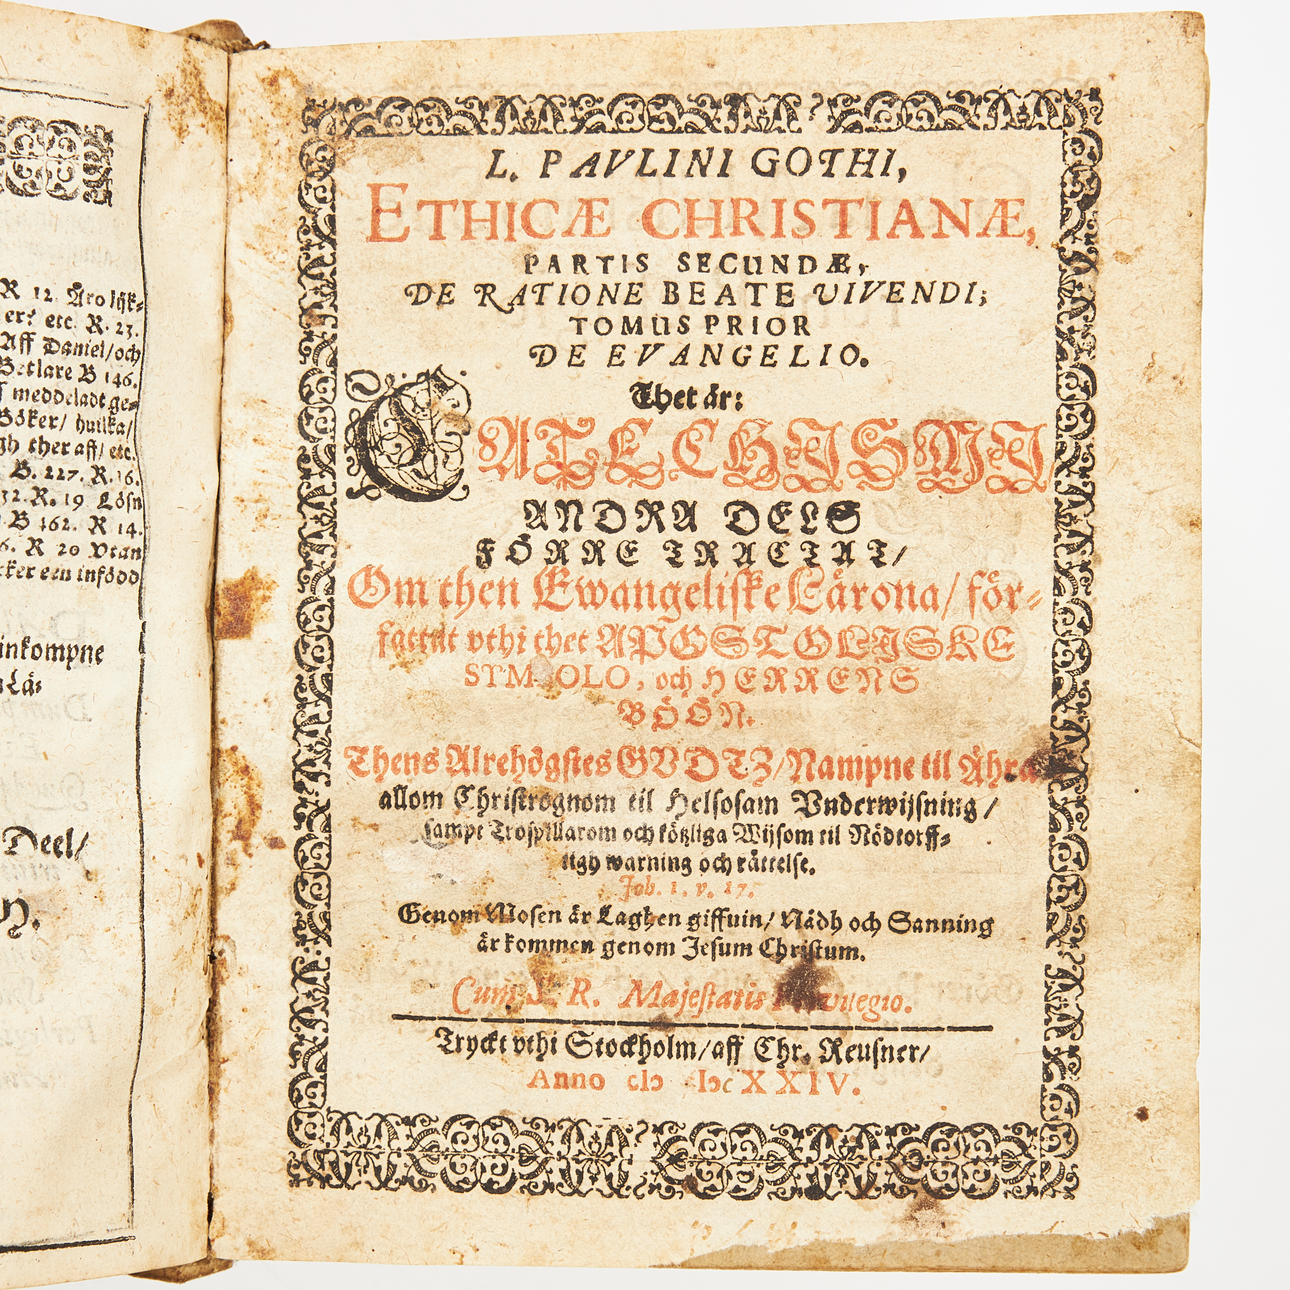 R 12. Äro lijk-
er? etc. R. 23.
Aff Daniel/och
Betlare B 146.
meddeladt ge-
Böker/ huilka/
gh ther aff/ etc.
B. 227. R. 16.
32. R. 19 Lösn
B 162. R 14.
6. R 20 Vtan
cker een infödd
inkompne
Lä:
Deel/
L. PAVLINI GOTHI,
ETHICÆ CHRISTIANÆ,
PARTIS SECUNDÆ,
DE RATIONE BEATE VIVENDI;
TOMUS PRIOR
DE EVANGELIO.
Thet är:
CATECHISMI
ANDRA DELS
FÖRRE TRACTAT/
Om then Ewangeliske Lärona/ för-
fattat vthi thet APOSTOLISKE
SYMBOLO, och HERRENS
BÖÖN.
Thens Alrehögstes GVDTZ/Nampne til Ähra
allom Christrognom til Helsosam Vnderwijsning/
sampt Trospillarom och kötzliga Wijsom til Nödtorff-
tigh warning och rättelse.
Joh. 1. v. 17.
Genom Mosen är Laghen giffuin/ Nådh och Sanning
är kommen genom Jesum Christum.
Cum S. R. Majestatis Privilegio.
Tryckt vthi Stockholm/aff Chr. Reusner/
Anno cIɔ Iɔc XXIV.